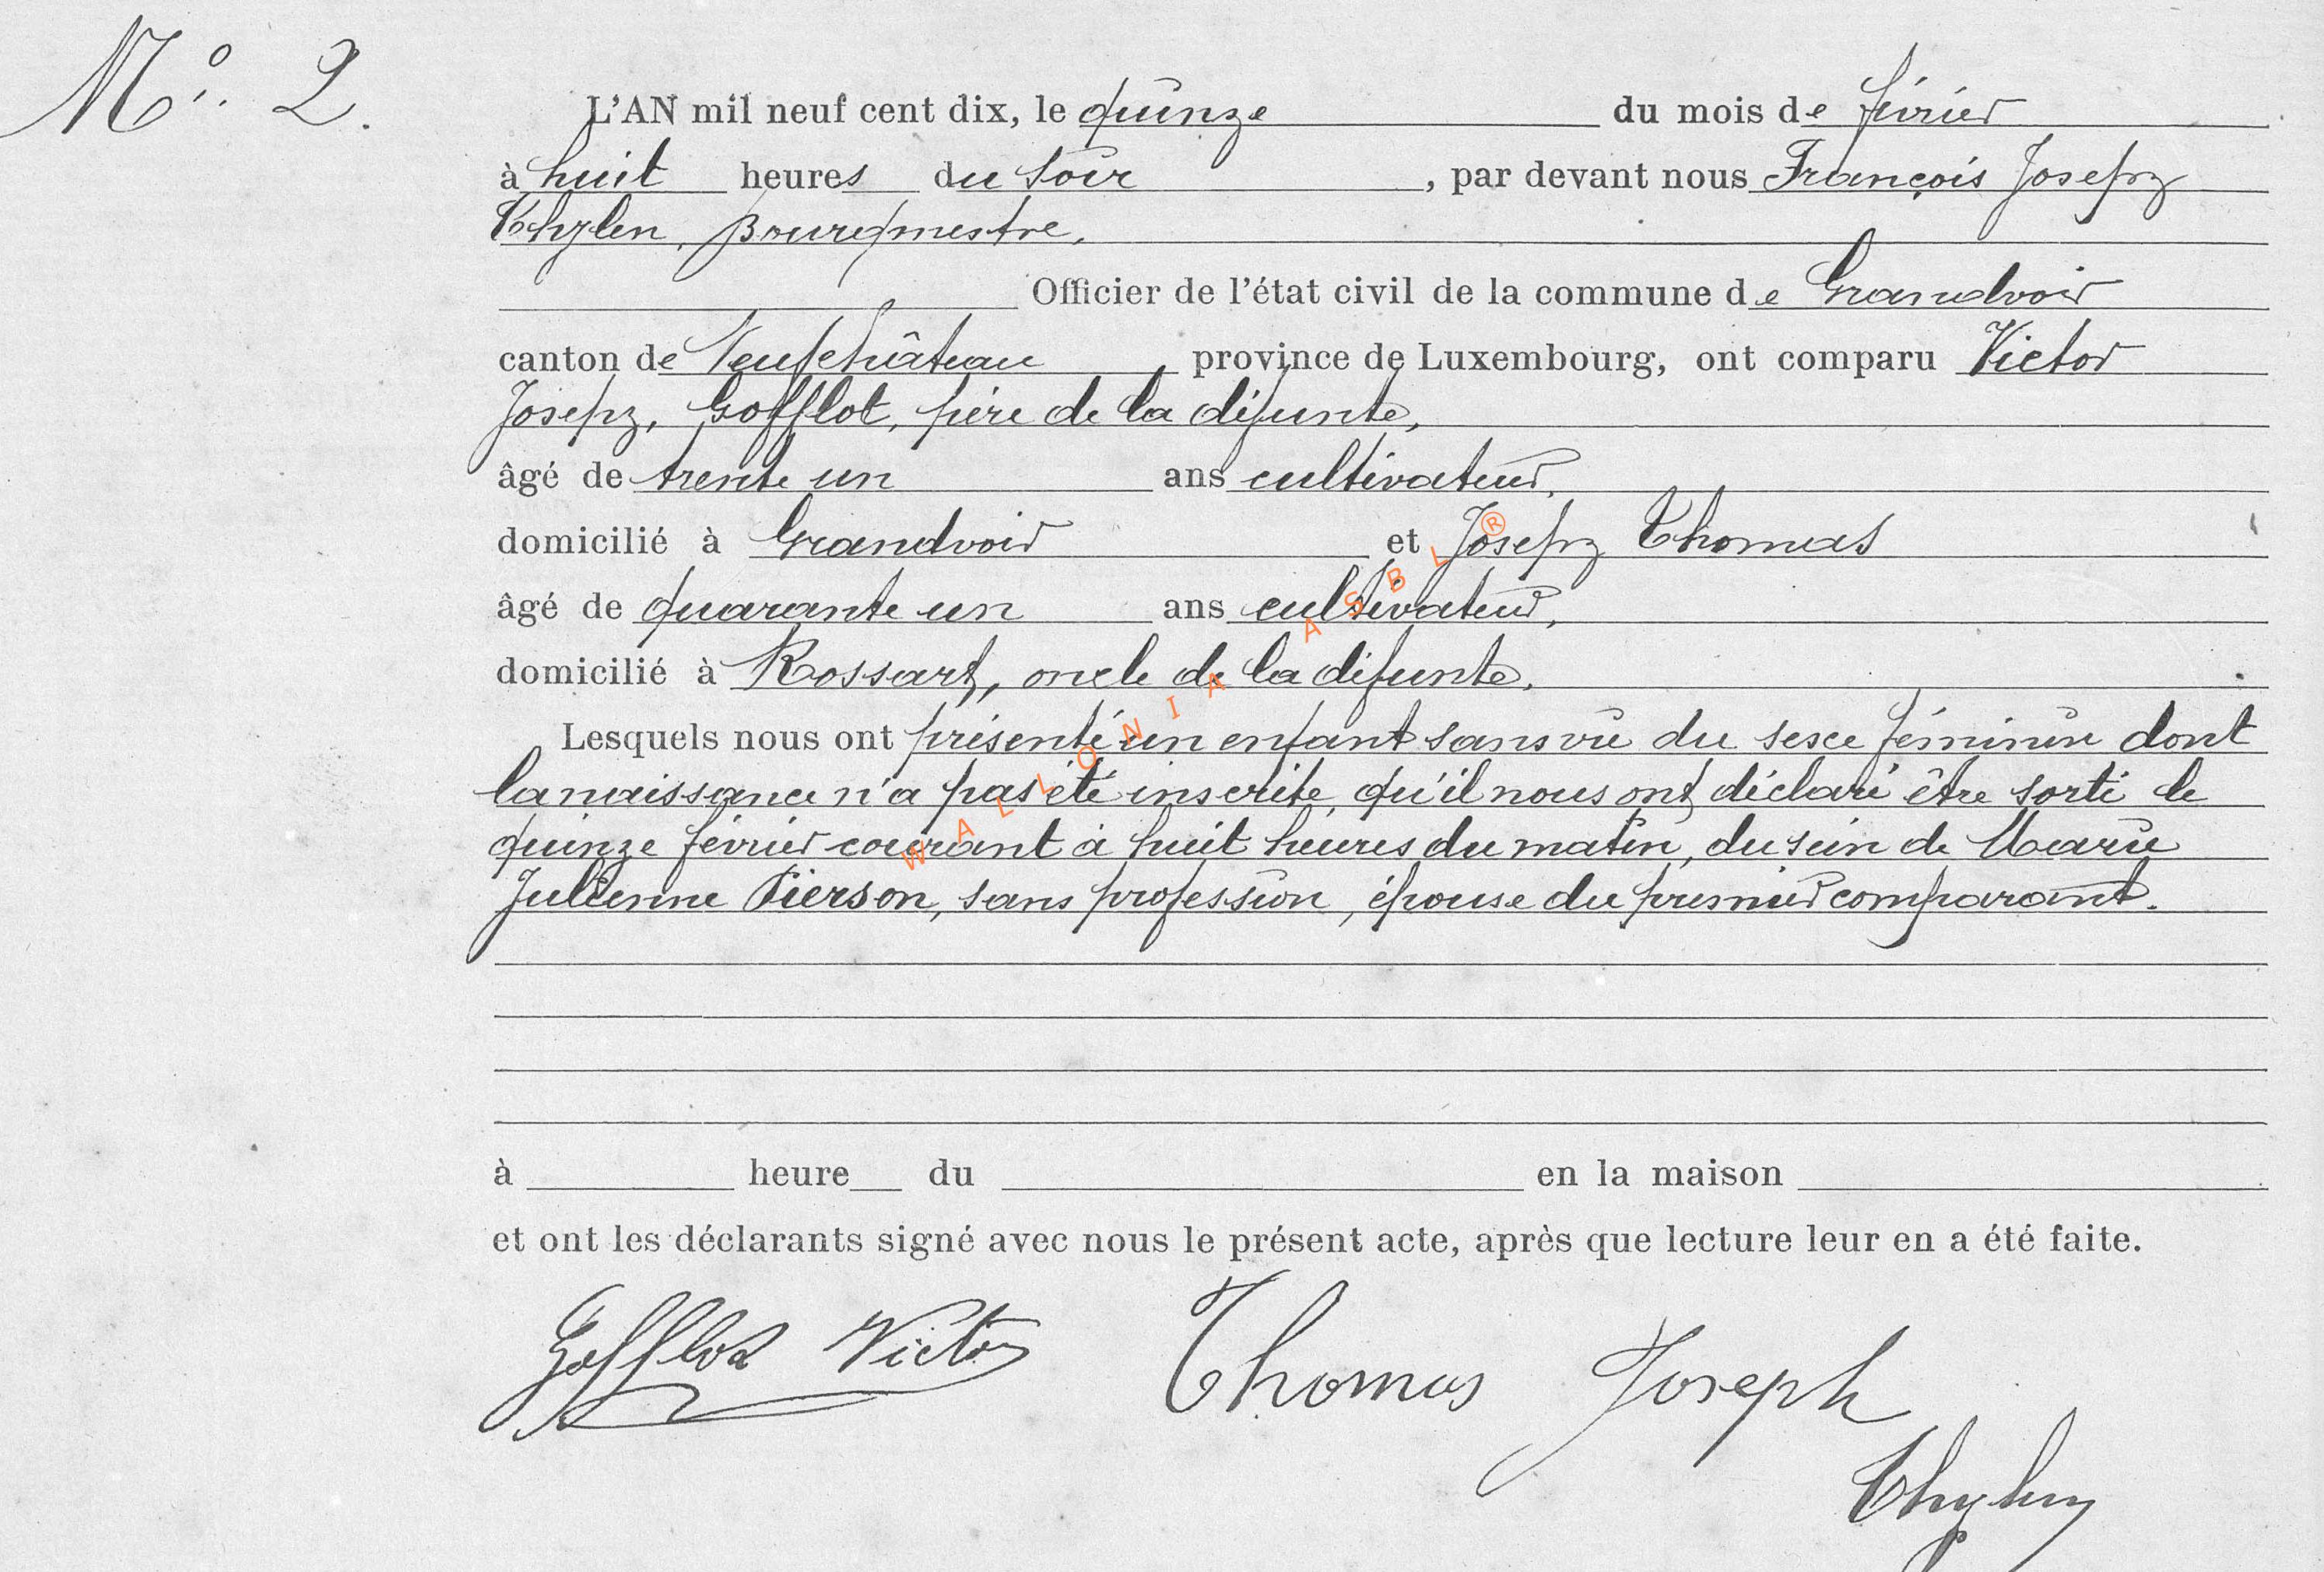 N° 2.
L'AN mil neuf cent dix, le quinze du mois de février
à huit heures du soir, par devant nous François Joseph
Thylen, Bourgmestre,
Officier de l'état civil de la commune de Grandvoir
canton de Neufchâteau province de Luxembourg, ont comparu Victor
Joseph, Gofflot, père de la défunte,
âgé de trente un ans cultivateur,
domicilié à Grandvoir et Joseph Thomas
âgé de quarante un ans cultivateur,
domicilié à Rossart, oncle de la défunte,
Lesquels nous ont présenté un enfant sans vie du sexe féminin dont
la naissance n'a pas été inscrite, qu'il nous ont déclaré être sorti le
quinze février courant à huit heures du matin, du sein de Marie
Julienne Pierson, sans profession, épouse du premier comparant.
à heure du en la maison
et ont les déclarants signé avec nous le présent acte, après que lecture leur en a été faite.
Gofflot Victor Thomas Joseph
Thylen
WALLONIA ASBL ®